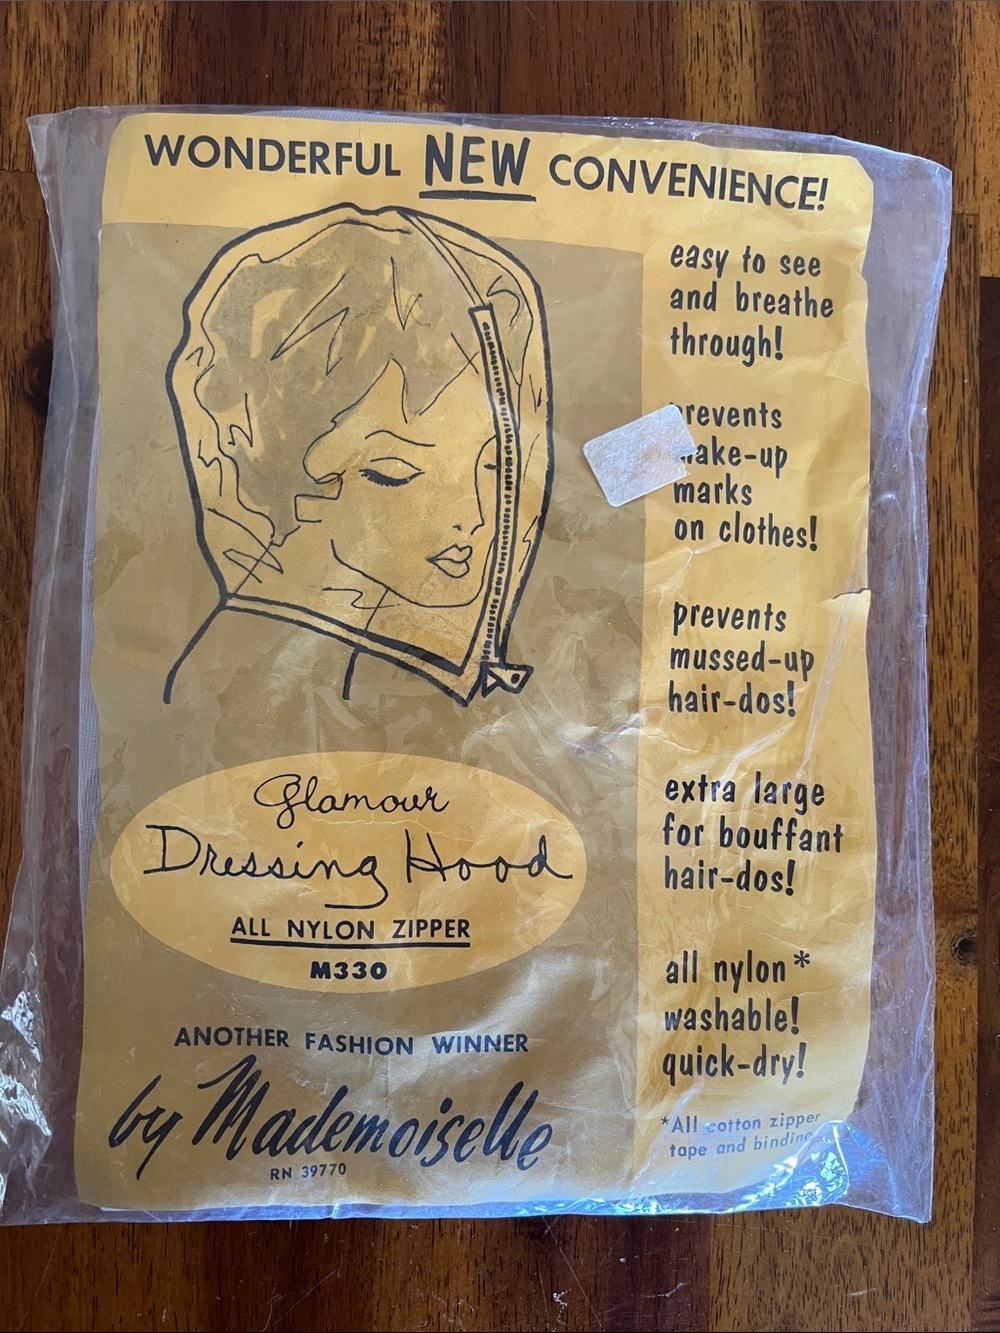 WONDERFUL NEW CONVENIENCE!
easy to see
and breathe
through!
prevents
make-up
marks
on clothes!
prevents
mussed-up
hair-dos!
extra large
for bouffant
hair-dos!
all nylon*
washable!
quick-dry!
*All cotton zipper
tape and binding
Glamour
Dressing Hood
ALL NYLON ZIPPER
M330
ANOTHER FASHION WINNER
by Mademoiselle
RN 39770